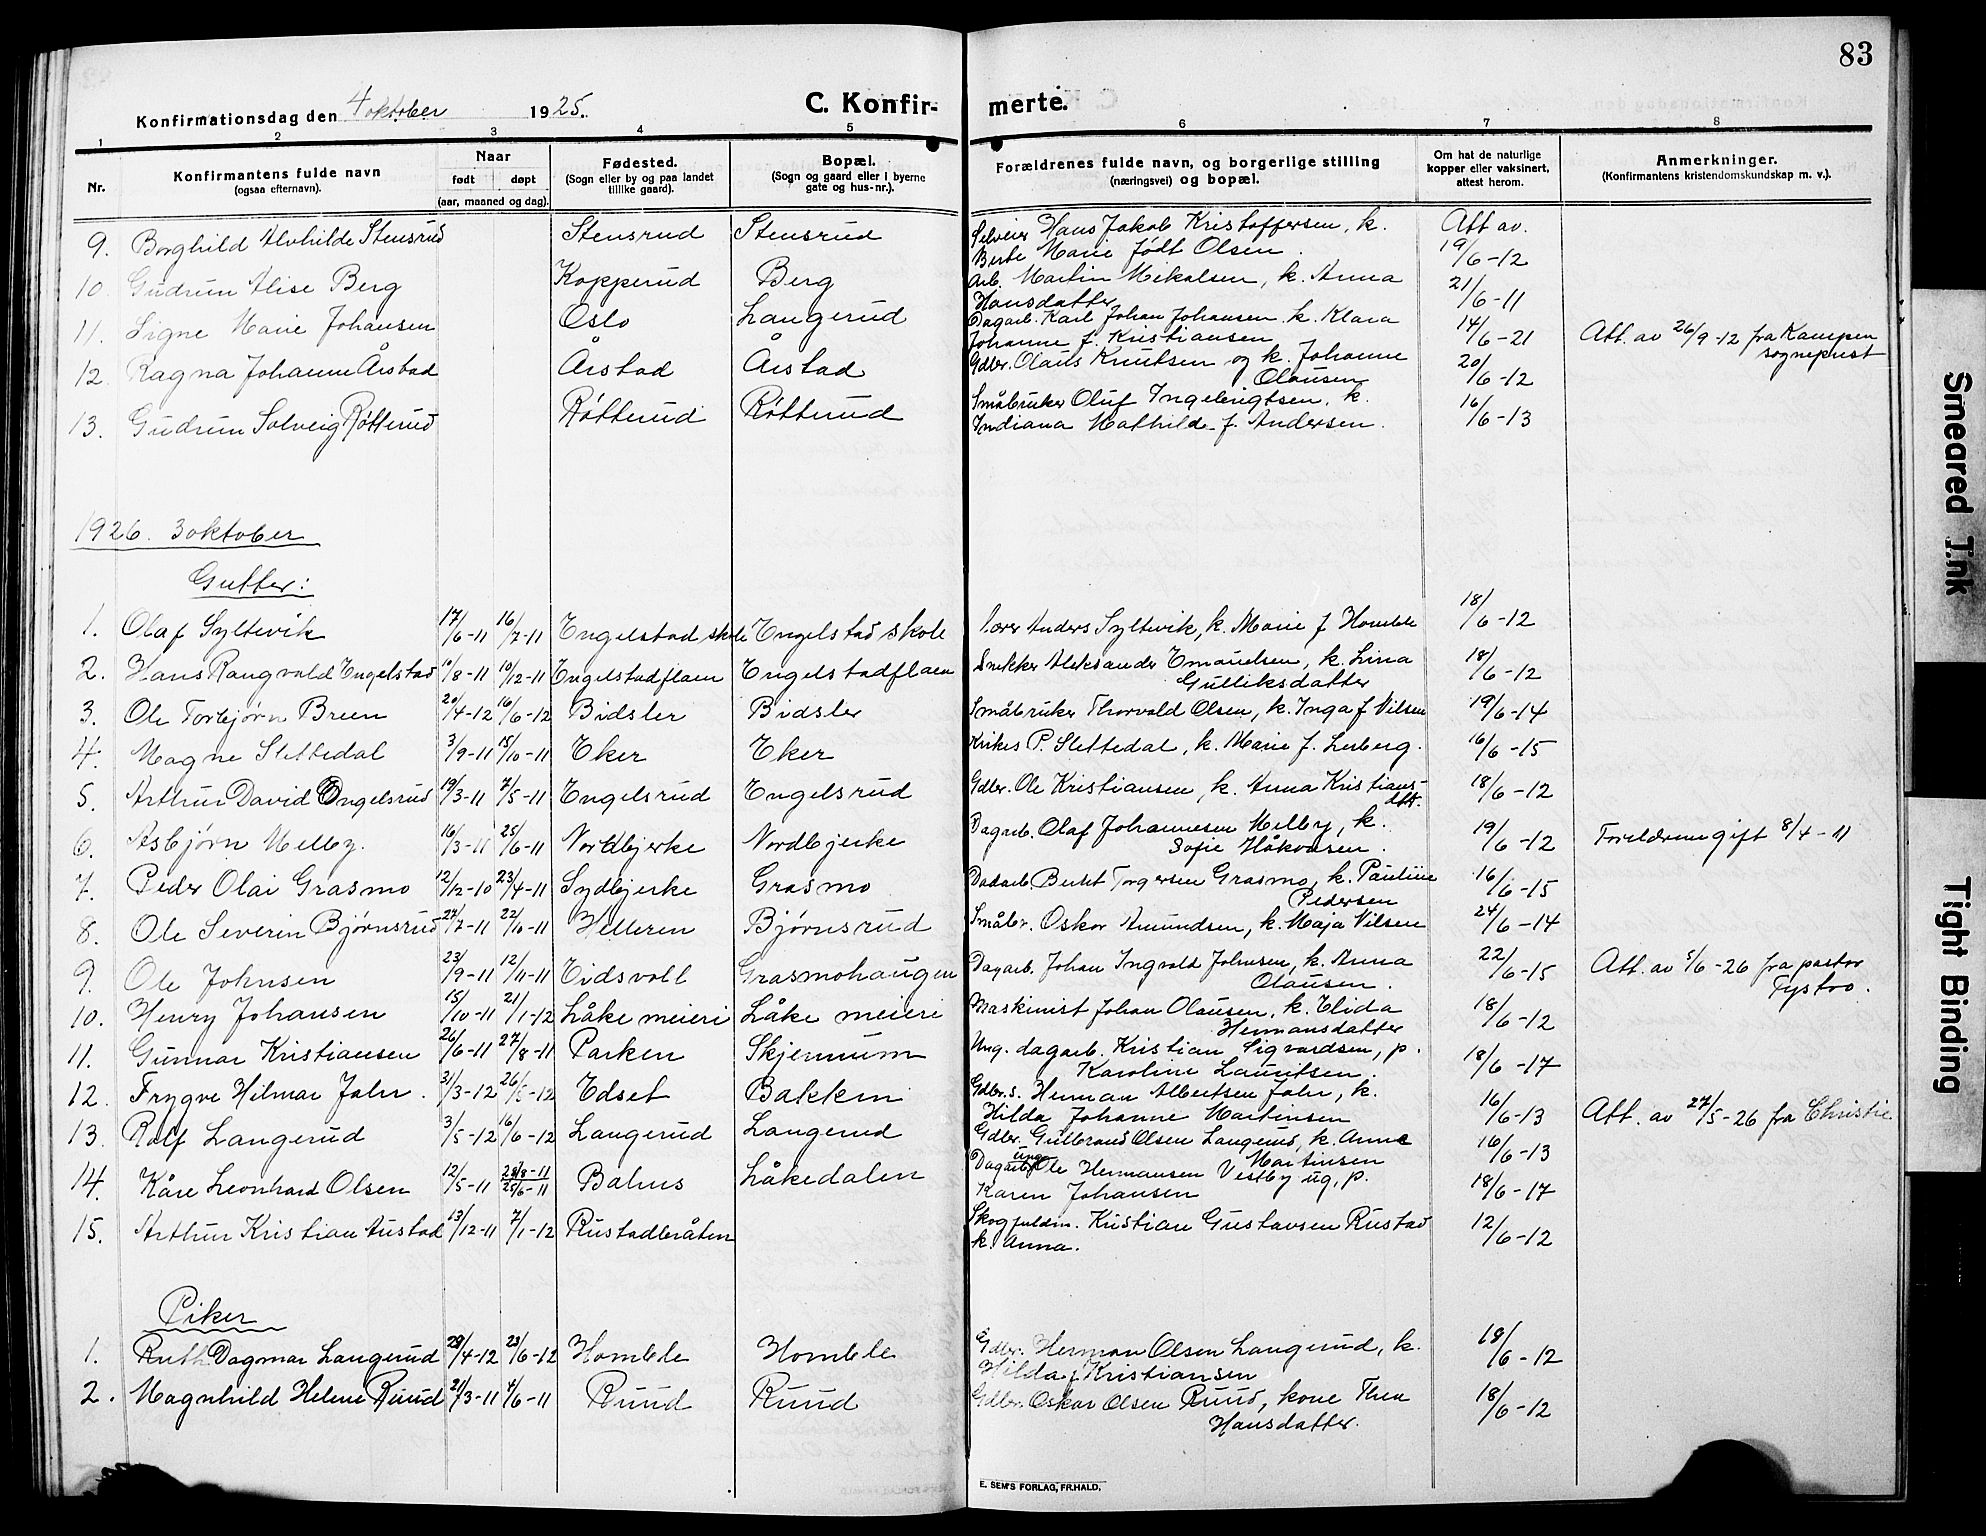 83
Konfirmationsdag den 4 oktober 1925. C. Konfir- merte.
1 2 3 4 5 6 7 8
Nr. Konfirmantens fulde navn (ogsaa efternavn). Naar født døpt (aar, maaned og dag). Fødested. (Sogn eller by og paa landet tillike gaard). Bopæl. (Sogn og gaard eller i byerne gate og hus-nr.). Forældrenes fulde navn, og borgerlige stilling (næringsvei) og bopæl. Om hat de naturlige kopper eller vaksinert, attest herom. Anmerkninger. (Konfirmantens kristendomskundskap m. v.).
9. Borghild Alvhilde Stensrud Stensrud Stensrud Selveier Hans Jakob Kristoffersen, k. Att av.
Berte Marie født Olsen. 19/6-12
10. Gudrun Alise Berg Kopperud Berg Arb. Martin Mikalsen, k. Anna 21/6-11
Hansdatter
11. Signe Marie Johansen Oslo Langerud Dagarb. Karl Johan Johansen. k. Klara 14/6-21 Att. av 26/9-12 fra Kampen
Johanne f. Kristiansen sogneprest
12. Ragna Johanne Årstad Årstad Årstad Gdbr. Olaus Knutsen og k. Johanne 20/6-12
Olausen
13. Gudrun Solveig Røtterud Røtterud Røtterud Småbruker Oluf Ingebrigtsen, k. 16/6-13
Indiana Mathilde f. Andersen.
1926. 3 oktober
Gutter:
1. Olaf Syltevik 17/6-11 16/7-11 Engelstad skole Engelstad skole Lærer Anders Syltevik, k. Marie f Homble 18/6-12
2. Hans Rangvald Engelstad 10/8-11 10/12-11 Engelstadflaen Engelstadflaen Snekker Aleksander Emanuelsen, k. Lina 18/6-12
Gulliksdatter
3. Ole Torbjørn Breen 20/4-12 16/6-12 Bidsler Bidsler Småbruker Thorvald Olsen, k. Inga f Nilsen 19/6-14
4. Magne Slettedal 3/9-11 15/10-11 Eker Eker P. Slettedal, k. Marie f. Lerberg. 16/6-15
5. Arthur David Engelsrud 19/3-11 7/5-11 Engelsrud Engelsrud Gdbr. Ole Kristiansen, k. Anna Kristians- 18/6-12
dtt.
6. Asbjørn Melby. 16/3-11 25/6-11 Nordbjerke Nordbjerke Dagarb. Olaf Johannesen Melby, k. 19/6-12 Foreldrene gift 8/4-11
Sofie Håkonsen.
7. Peder Olai Grasmo 12/12-10 23/4-11 Sydbjerke Grasmo Dadarb. Berhet Torgersen Grasmo, k. Pauline 16/6-15
Pedersen
8. Ole Severin Bjørnsrud 27/7-11 22/10-11 Helleren Bjørnsrud Småbr. Oskar Amundsen, k. Maja Nilsen 24/6-14
9. Ole Johnsen 23/9-11 12/11-11 Eidsvoll Grasmohaugen Dagarb. Johan Ingvald Johnsen, k. Anna 22/6-15 Att. av 5/6-26 fra pastor
Olausen. Tystvo.
10. Henry Johansen 15/10-11 21/1-12 Låke meieri Låke meieri Maskinist Johan Olausen, k. Elida 18/6-12
Hermansdatter
11. Gunnar Kristiansen 26/6-11 27/8-11 Parken Skjennum Ung. dagarb. Kristian Sigvardsen, p. 18/6-17
Karoline Lauritsen.
12. Trygve Hilmar Jahr. 31/3-12 26/5-12 Edset Bakken Gdbr.s. Herman Albertsen Jahr, k. 16/6-13 Att. av 27/5-26 fra Christie
Hilda Johanne Martinsen
13. Rolf Langerud 3/5-12 16/6-12 Langerud Langerud Gdbr. Gulbrand Olsen Langerud, k. Anne 16/6-13
Martinsen
14. Kåre Leonhard Olsen 12/5-11 28/8-11 25/6-11 Bahus Låkedalen Dagarb. ung Ole Hermansen Vestby ug, p. 18/6-17
Karen Johansen
15. Arthur Kristian Austad 13/12-11 7/1-12 Rustadbråten Skogfuldm. Kristian Gustavsen Rustad 12/6-12
k. Anna.
Piker
1. Ruth Dagmar Langerud 29/4-12 23/6-12 Homble Homble Gdbr. Herman Olsen Langerud, k. 18/6-12
Hilda f Kristiansen
2. Magnhild Helene Ruud 21/3-11 4/6-11 Ruud Ruud Gdbr. Oskar Olsen Ruud, kone Thea 18/6-12
Hansdatter.
E. SEM'S FORLAG, FR.HALD.
Smeared Ink
Tight Binding